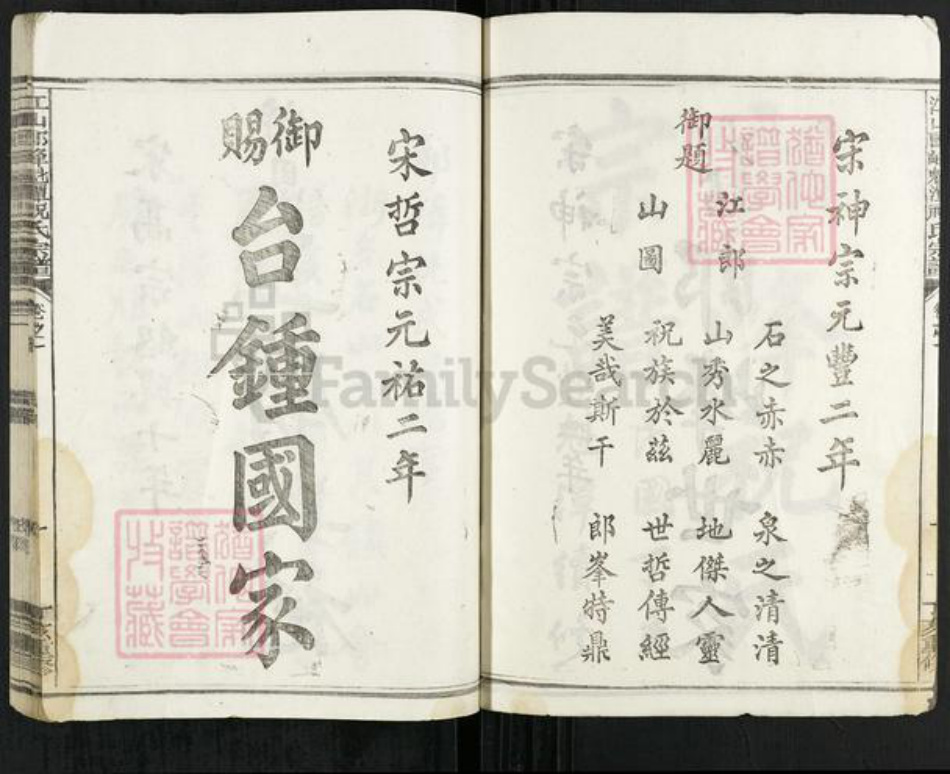 宋神宗元豐二年
御題
江郎
山圖
石之赤赤 泉之清清
山秀水麗 地傑人靈
祝族於茲 世哲傳經
美哉斯千 郎峯特鼎
宋哲宗元祐二年
御賜
台鍾國家
FamilySearch